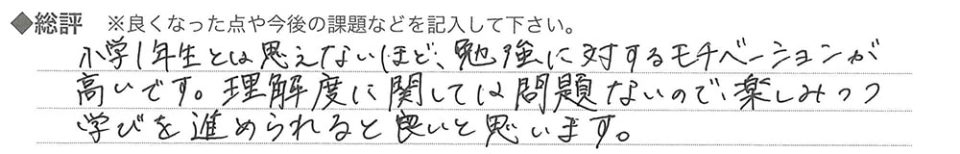 ◆総評 ※良くなった点や今後の課題などを記入して下さい。
小学1年生とは思えないほど、勉強に対するモチベーションが
高いです。理解度に関しては問題ないので、楽しみつつ
学びを進められると良いと思います。